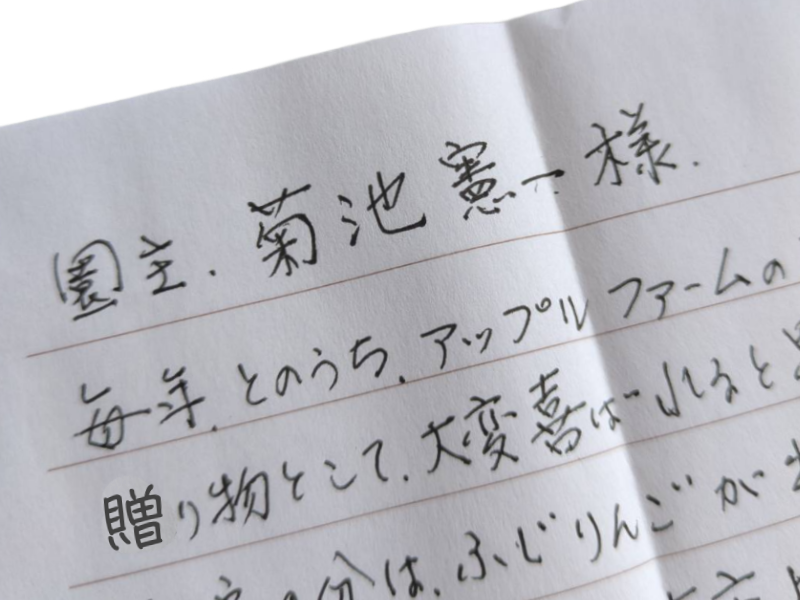 園主.菊池憲一様.
毎年.とのうち.アップルファームの
贈り物として.大変喜ばれると
分は.ふじりんごが